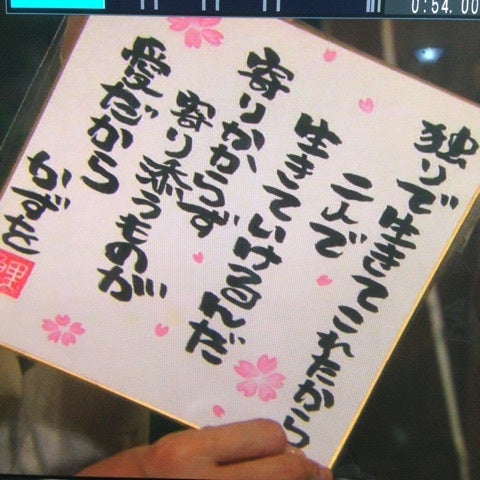 独りで生きてこれたから
二人で
生きていけるんだ
寄りかからず
寄り添うものが
愛だから
かずを
0:54.00